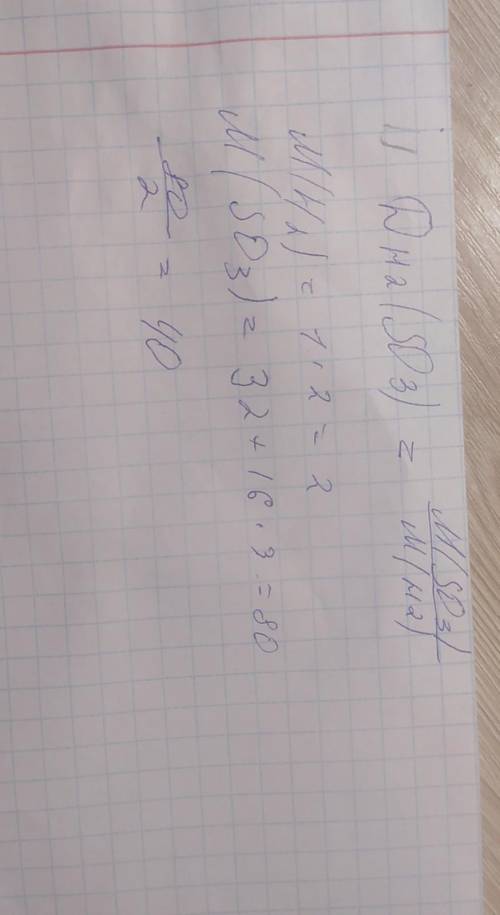 1) D H2(SO3) = M(SO3) / M(H2)
M(H2) = 1 · 2 = 2
M(SO3) = 32 + 16 · 3 = 80
80 / 2 = 40